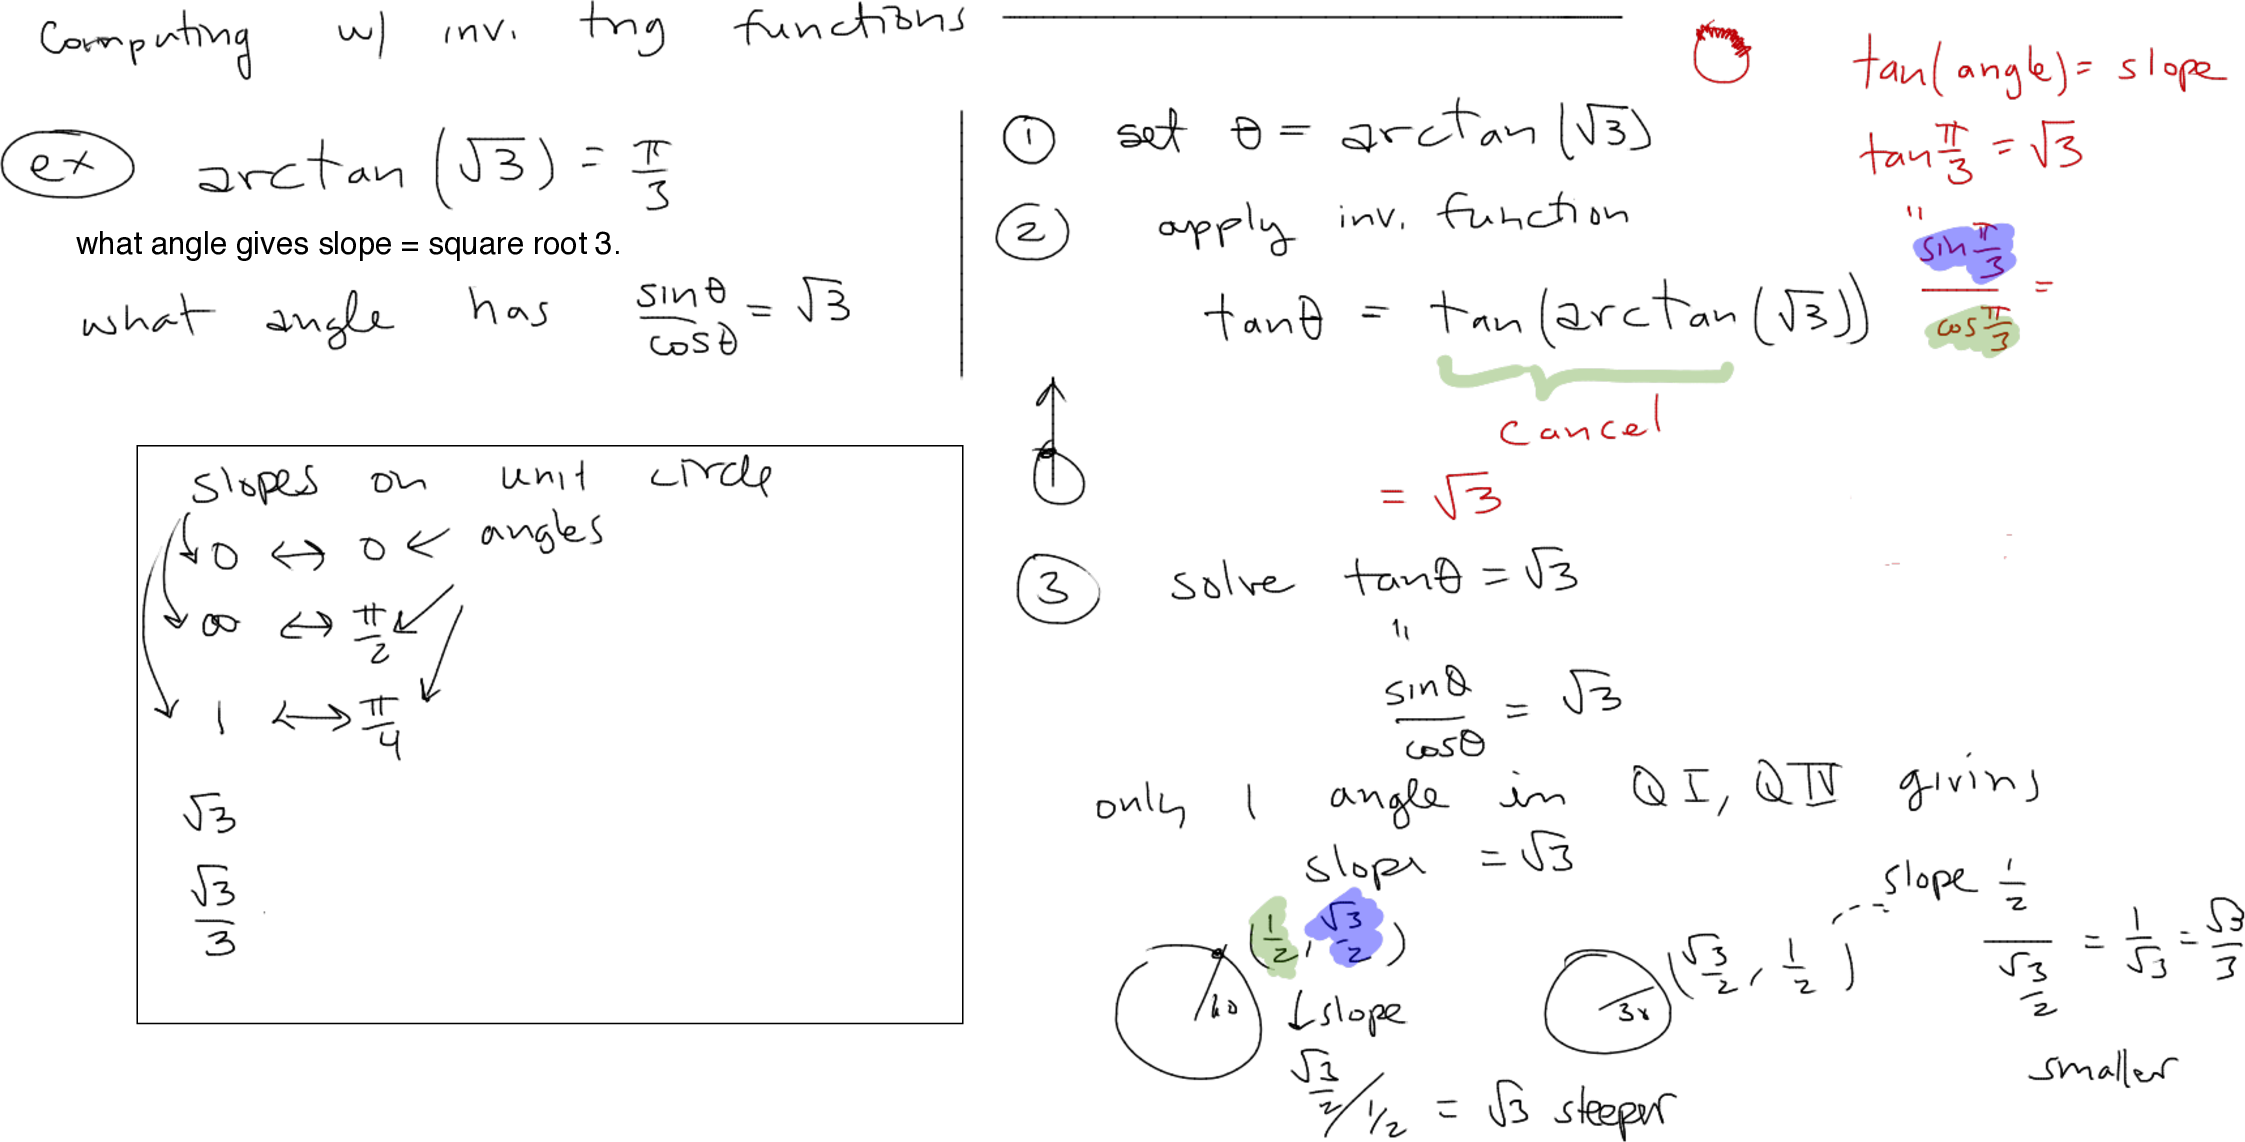 Computing w/ inv. trig functions
ex arctan (√3) = π/3
what angle gives slope = square root 3.
what angle has sinθ/cosθ = √3
slopes on unit circle
0 ↔ 0 ← angles
∞ ↔ π/2
1 ↔ π/4
√3
√3/3
① set θ = arctan (√3)
② apply inv. function
tanθ = tan (arctan (√3))
cancel
= √3
③ solve tanθ = √3
"
sinθ/cosθ = √3
only 1 angle in QI, QIV giving
slope = √3
(1/2, √3/2)
60
↓ slope
√3/2 / 1/2 = √3 steeper
(√3/2, 1/2)
30
slope 1/2 / √3/2 = 1/√3 = √3/3
smaller
tan(angle) = slope
tan π/3 = √3
"
sin π/3 / cos π/3 =